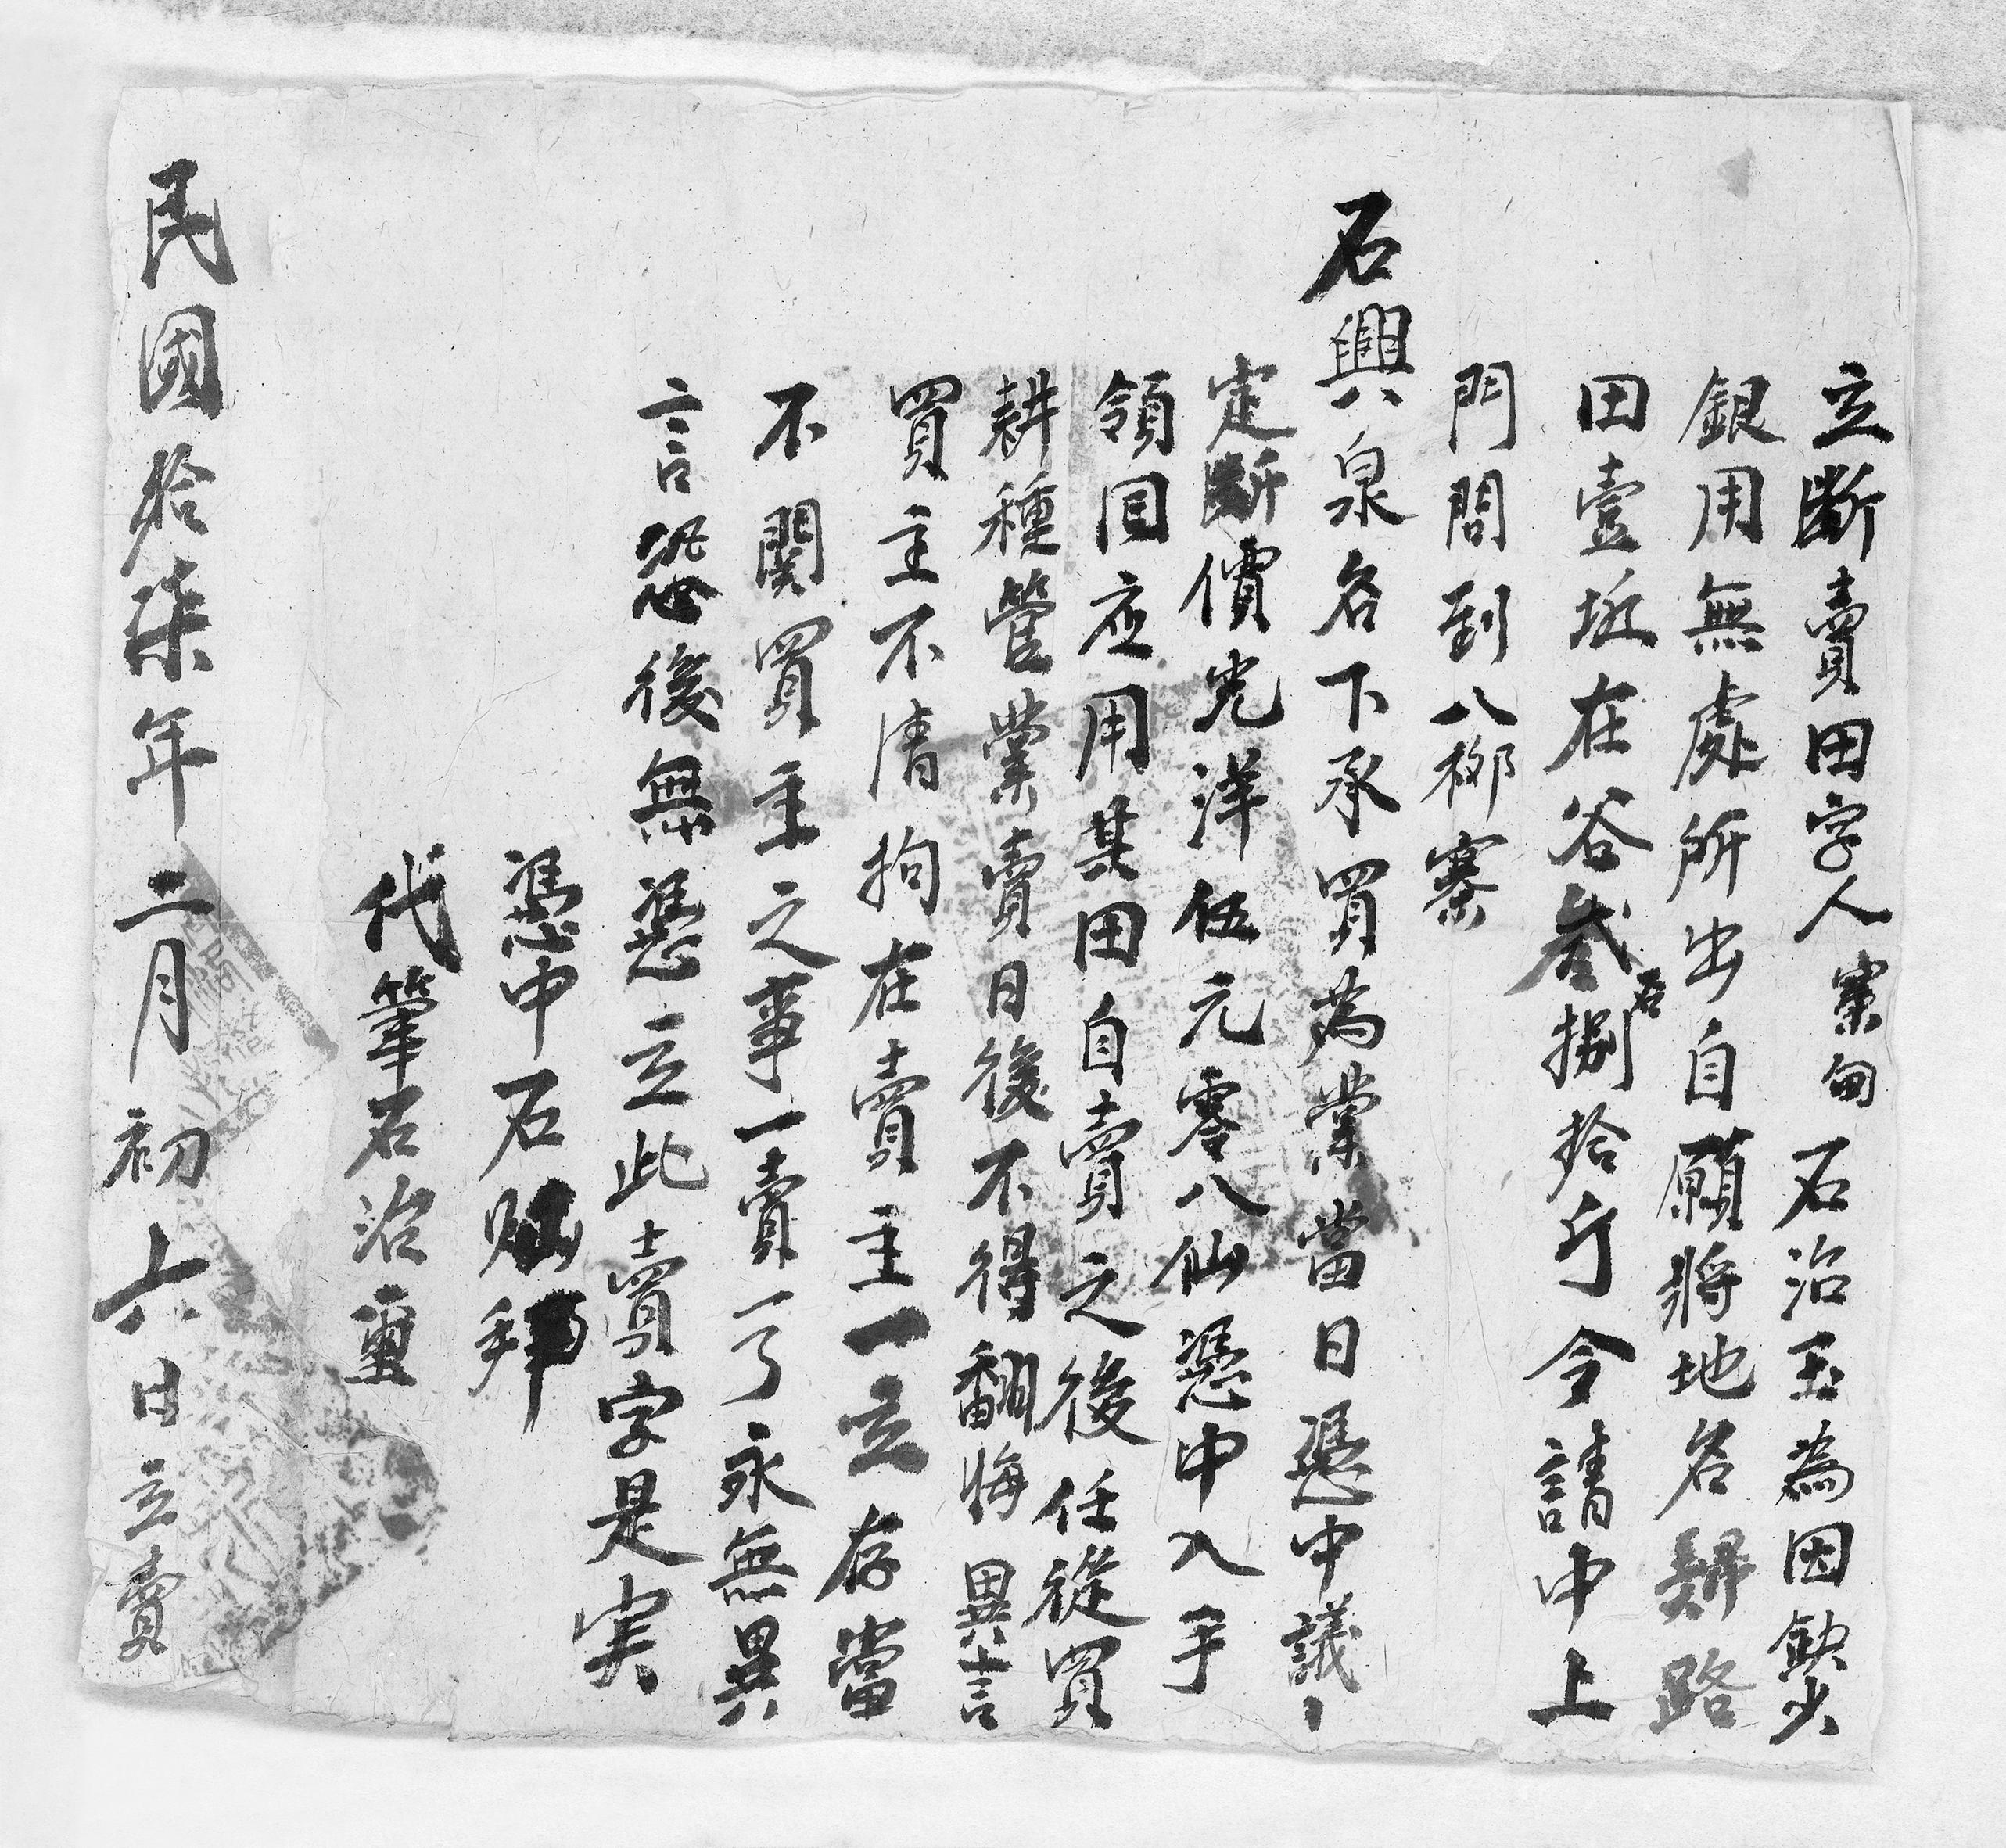 立斷賣田字人寨甸石治玉為因缺少
銀用無處所出自願將地名歸路
田壹坵在谷叁百捌拾斤今請中上
門問到八梛寨
石興泉名下承買為業當日憑中議
定斷價光洋伍元零八仙憑中入手
領囬應用其田自賣之後任從買
耕種管業賣日後不得翻悔異言
買主不清拘在賣主一立存當
不関買主之事一賣一了永無異
言恐後無憑立此賣字是実
憑中石拜
代筆石治璽
民國拾柒年二月初六日立賣